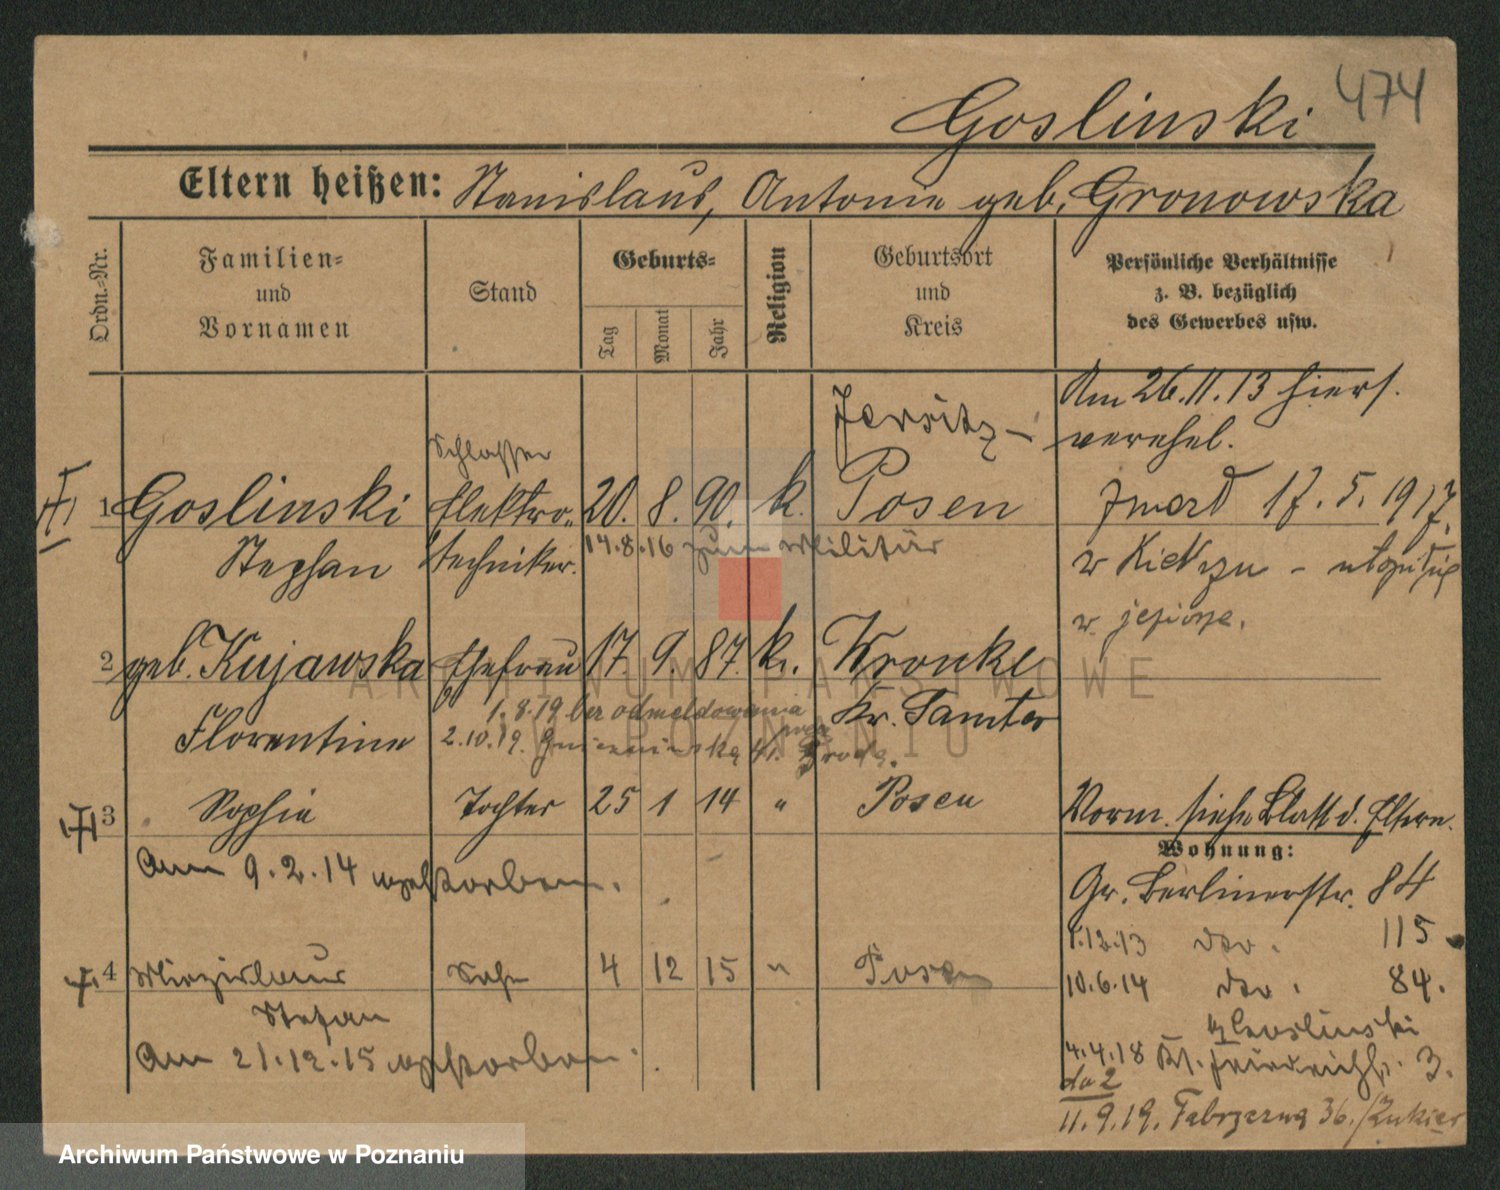 474
Goslinski
Eltern heißen: Stanislaus, Antonie geb. Gronowska
Ordn.-Nr.
Familien-
und
Vornamen
Stand
Geburts-
Tag
Monat
Jahr
Religion
Geburtsort
und
Kreis
Persönliche Verhältnisse
z. B. bezüglich
des Gewerbes usw.
Am 26.11.13 hiers.
verehel.
Schlosser
Jersitz-
1 Goslinski Elektro- 20. 8. 90. k. Posen
Stephan techniker.
14.8.16 zum Militär
zmarł 17.5.1917.
w Kiekrzu - utopił się
w jeziorze.
2 geb. Kujawska Ehefrau 17. 9. 87. k. Wronke
Florentine Kr. Samter
1.8.19 bez odmeldowania
2.10.19. Gniezninska 41. Środa.
3 Sophie Tochter 25 1 14 " Posen
Am 9.2.14 verstorben.
Vorm. siehe Blatt d. Eltern.
Wohnung:
Gr. Berlinerstr. 84
1.12.13 dto. 115
10.6.14 dto. 84.
4 Mirzislaus Sohn 4 12 15 " Posen
Stefan
Am 21.12.15 verstorben.
Goslinski
4.4.18 Kl. 3.
do 2
11.9.19. 36./Zukier
ARCHIWUM PAŃSTWOWE
W POZNANIU
Archiwum Państwowe w Poznaniu